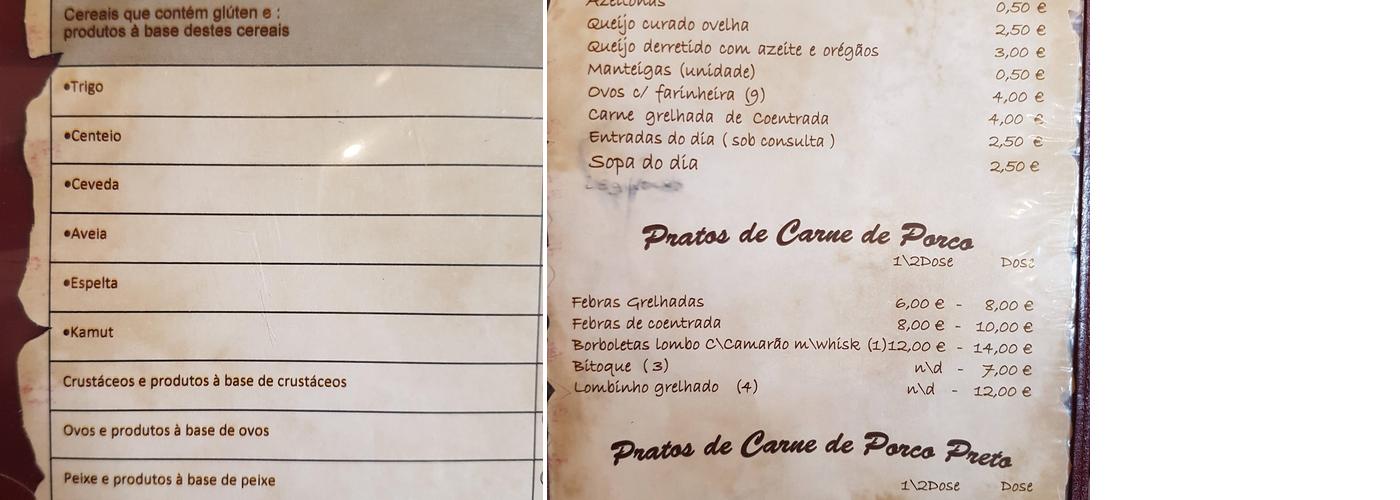 Cereais que contém glúten e :
produtos à base destes cereais
•Trigo
•Centeio
•Ceveda
•Aveia
•Espelta
•Kamut
Crustáceos e produtos à base de crustáceos
Ovos e produtos à base de ovos
Peixe e produtos à base de peixe
Azeitonas 0,50 €
Queijo curado ovelha 2,50 €
Queijo derretido com azeite e orégãos 3,00 €
Manteigas (unidade) 0,50 €
Ovos c/ farinheira (9) 4,00 €
Carne grelhada de Coentrada 4,00 €
Entradas do dia ( sob consulta ) 2,50 €
Sopa do dia 2,50 €
Pratos de Carne de Porco
1\2Dose Dose
Febras Grelhadas 6,00 € - 8,00 €
Febras de coentrada 8,00 € - 10,00 €
Borboletas lombo C\Camarão m\whisk (1)12,00 € - 14,00 €
Bitoque (3) n\d - 7,00 €
Lombinho grelhado (4) n\d - 12,00 €
Pratos de Carne de Porco Preto
1\2Dose Dose